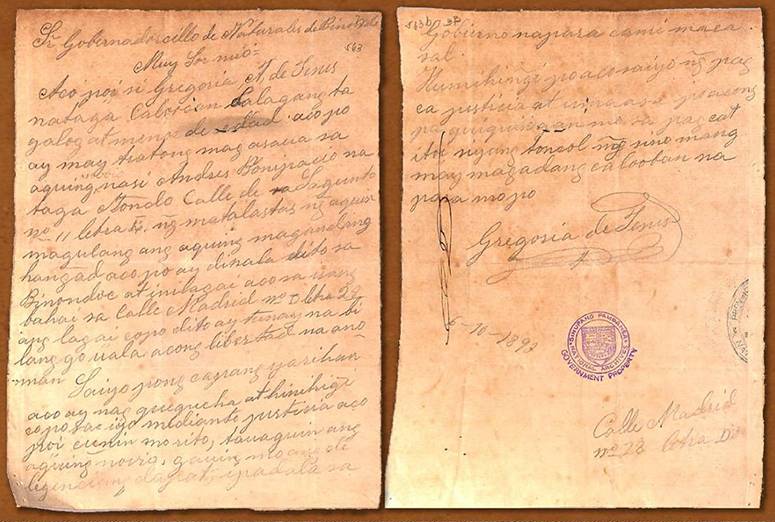 Sr Gobernadorcillo de Naturales de Binondo
563
Muy Sor mio=
Aco poi si Gregoria A. de Jesus
nataga Caloocan dalagang ta
galog at menor de edad. aco po
ay may tratong mag asaua sa
aquing nasi Andres Bonipacio na
taga Tondo Calle de Sagunto
no 11 letra ng matalastas ng aquin
magulang ang aquing magandang
hangad aco po ay dinala dito sa
Binondoc at inilagai aco sa isang
bahai sa Calle Madrid no letra 22
ang lagai co po dito ay tunay na bi
lang go uala acong libertad na ano
man
Saiyo pong capang yarihan
aco ay nag at hinihigi
co po sa iyo mediante justicia aco
poi cunin mo rito, tauaguin ang
aquing novio, gauin mo ang de
legencian at ipadala sa
563b 37
Gobierno napara cami maca
sal.
Humihingi po aco saiyo ng pag
ca justicia at po acong
sa pag cat
itoi ngung toncol ng sino mang
may magadang calooban na
para mo po
Gregoria de Jesus
6-10-1893
SINUPANG PAMBANSA
NATIONAL ARCHIVES
GOVERNMENT PROPERTY
Calle Madrid
no 22 letra D